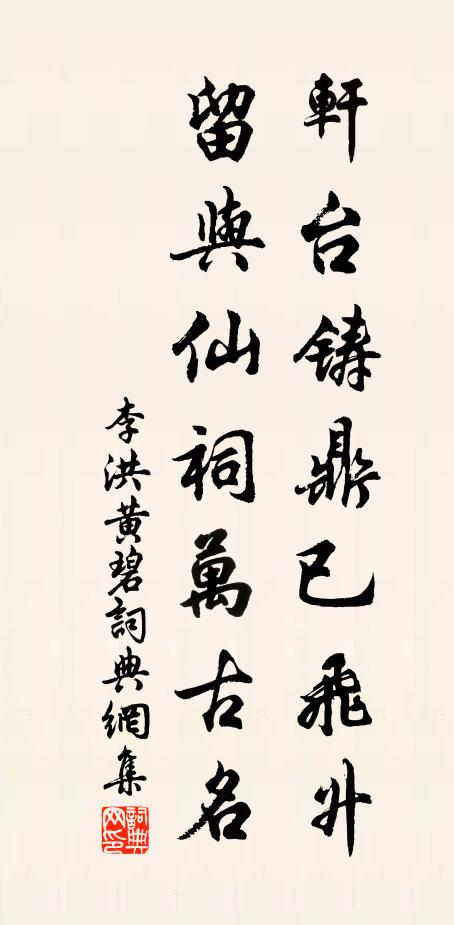 軒台鋳鼎已飛升
留與仙祠萬古名
李洪黃碧詞典網集
詞典網印